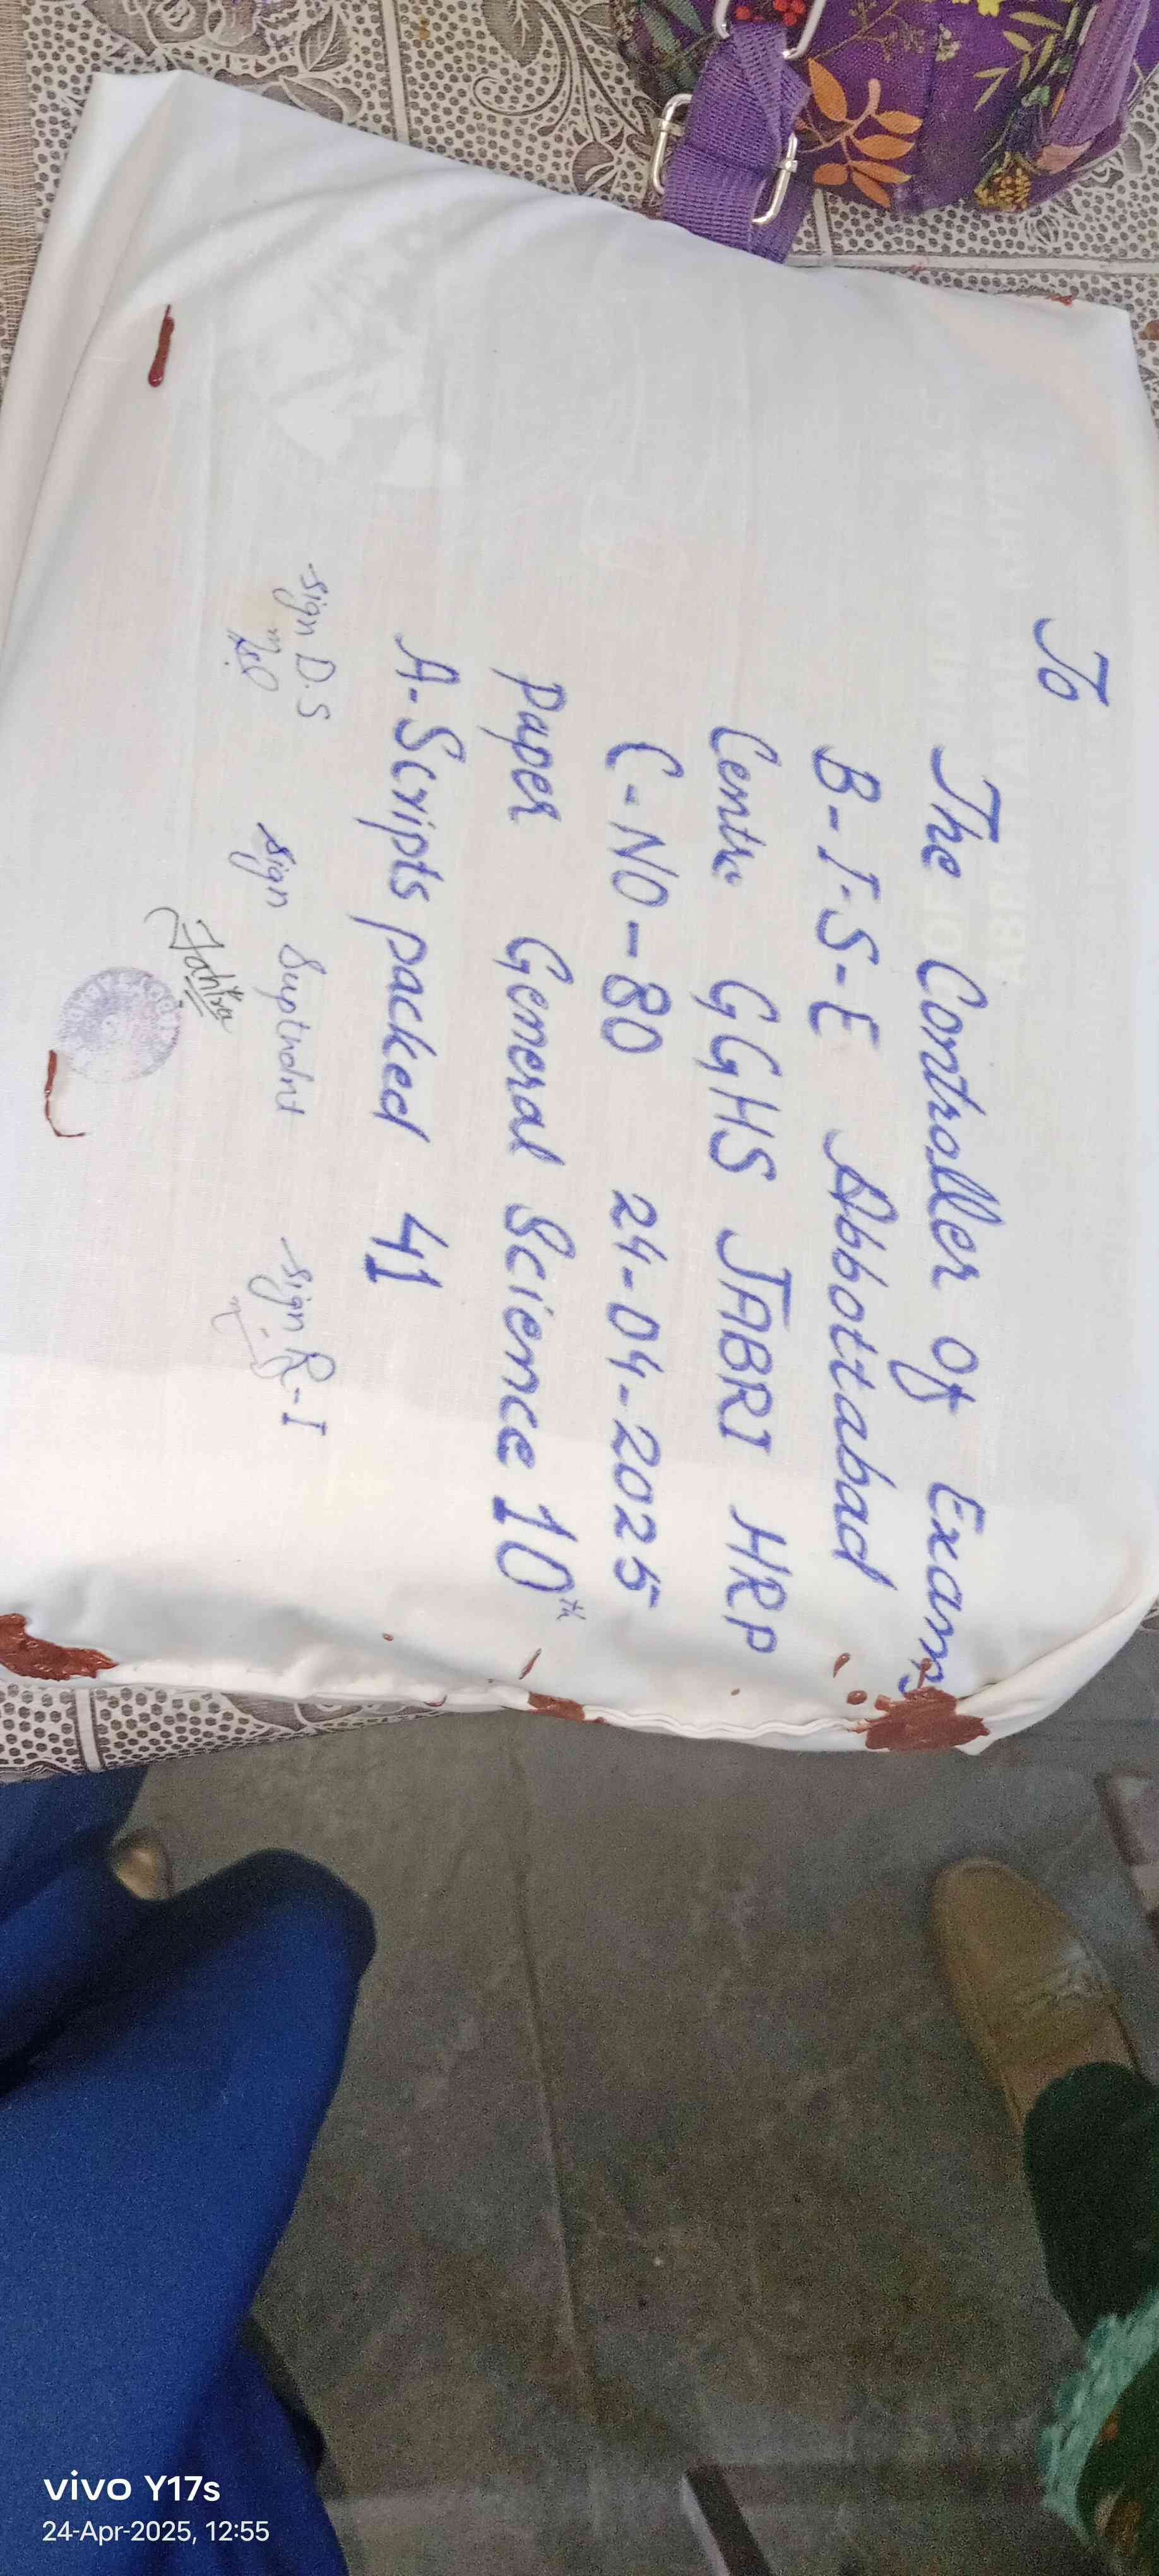 To
The Controller Of Exams
B-I-S-E Abbottabad
Centre GGHS JABRI HRP
C-NO-80 24-04-2025
paper General Science 10th
A-Scripts packed 41
sign D.S sign Suptndnt sign R-I
vivo Y17s
24-Apr-2025, 12:55